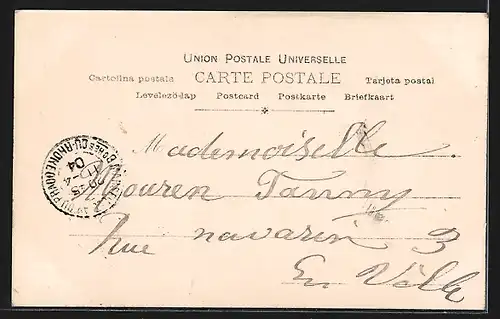 UNION POSTALE UNIVERSELLE
Cartolina postale CARTE POSTALE Tarjeta postal
Levelező-lap Postcard Postkarte Briefkaart
Mademoiselle
Mouren Fanny
Rue navarin 3
En Ville
BCHES DU-RHONE
04